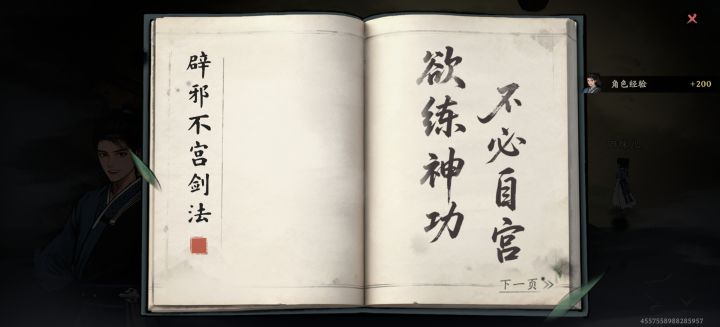 辟邪不宫剑法
欲练神功
不必自宫
下一页
角色经验 +200
4557558988285957